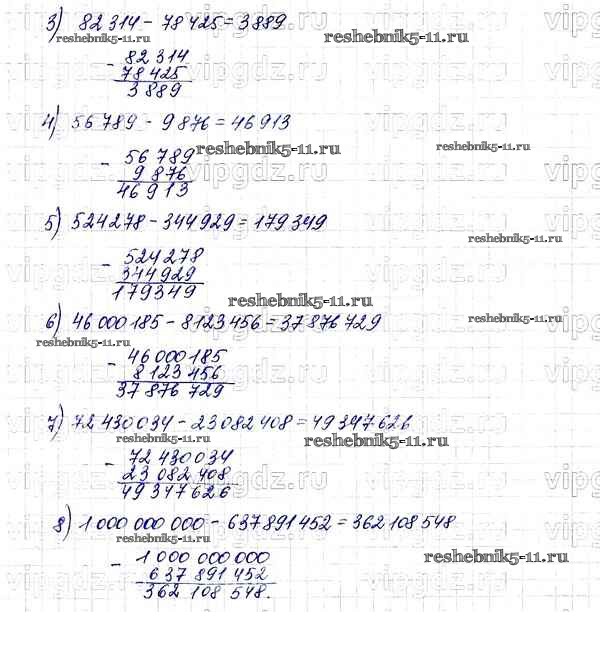 3) 82 314 - 78 425 = 3 889
reshebnik5-11.ru
reshebnik5-11.ru
- 82 314
78 425
3 889
4) 56 789 - 9 876 = 46 913
reshebnik5-11.ru
- 56 789
9 876
46 913
5) 524278 - 344929 = 179349
reshebnik5-11.ru
- 524278
344929
179349
reshebnik5-11.ru
6) 46 000 185 - 8123 456 = 37 876 729
reshebnik5-11.ru
reshebnik5-11.ru
- 46 000 185
8 123 456
37 876 729
7) 72 430 034 - 23 082 408 = 49 347 626
reshebnik5-11.ru
reshebnik5-11.ru
- 72 430 034
23 082 408
49 347 626
8) 1 000 000 000 - 637 891 452 = 362 108 548
reshebnik5-11.ru
reshebnik5-11.ru
- 1 000 000 000
637 891 452
362 108 548.
vipgdz.ru